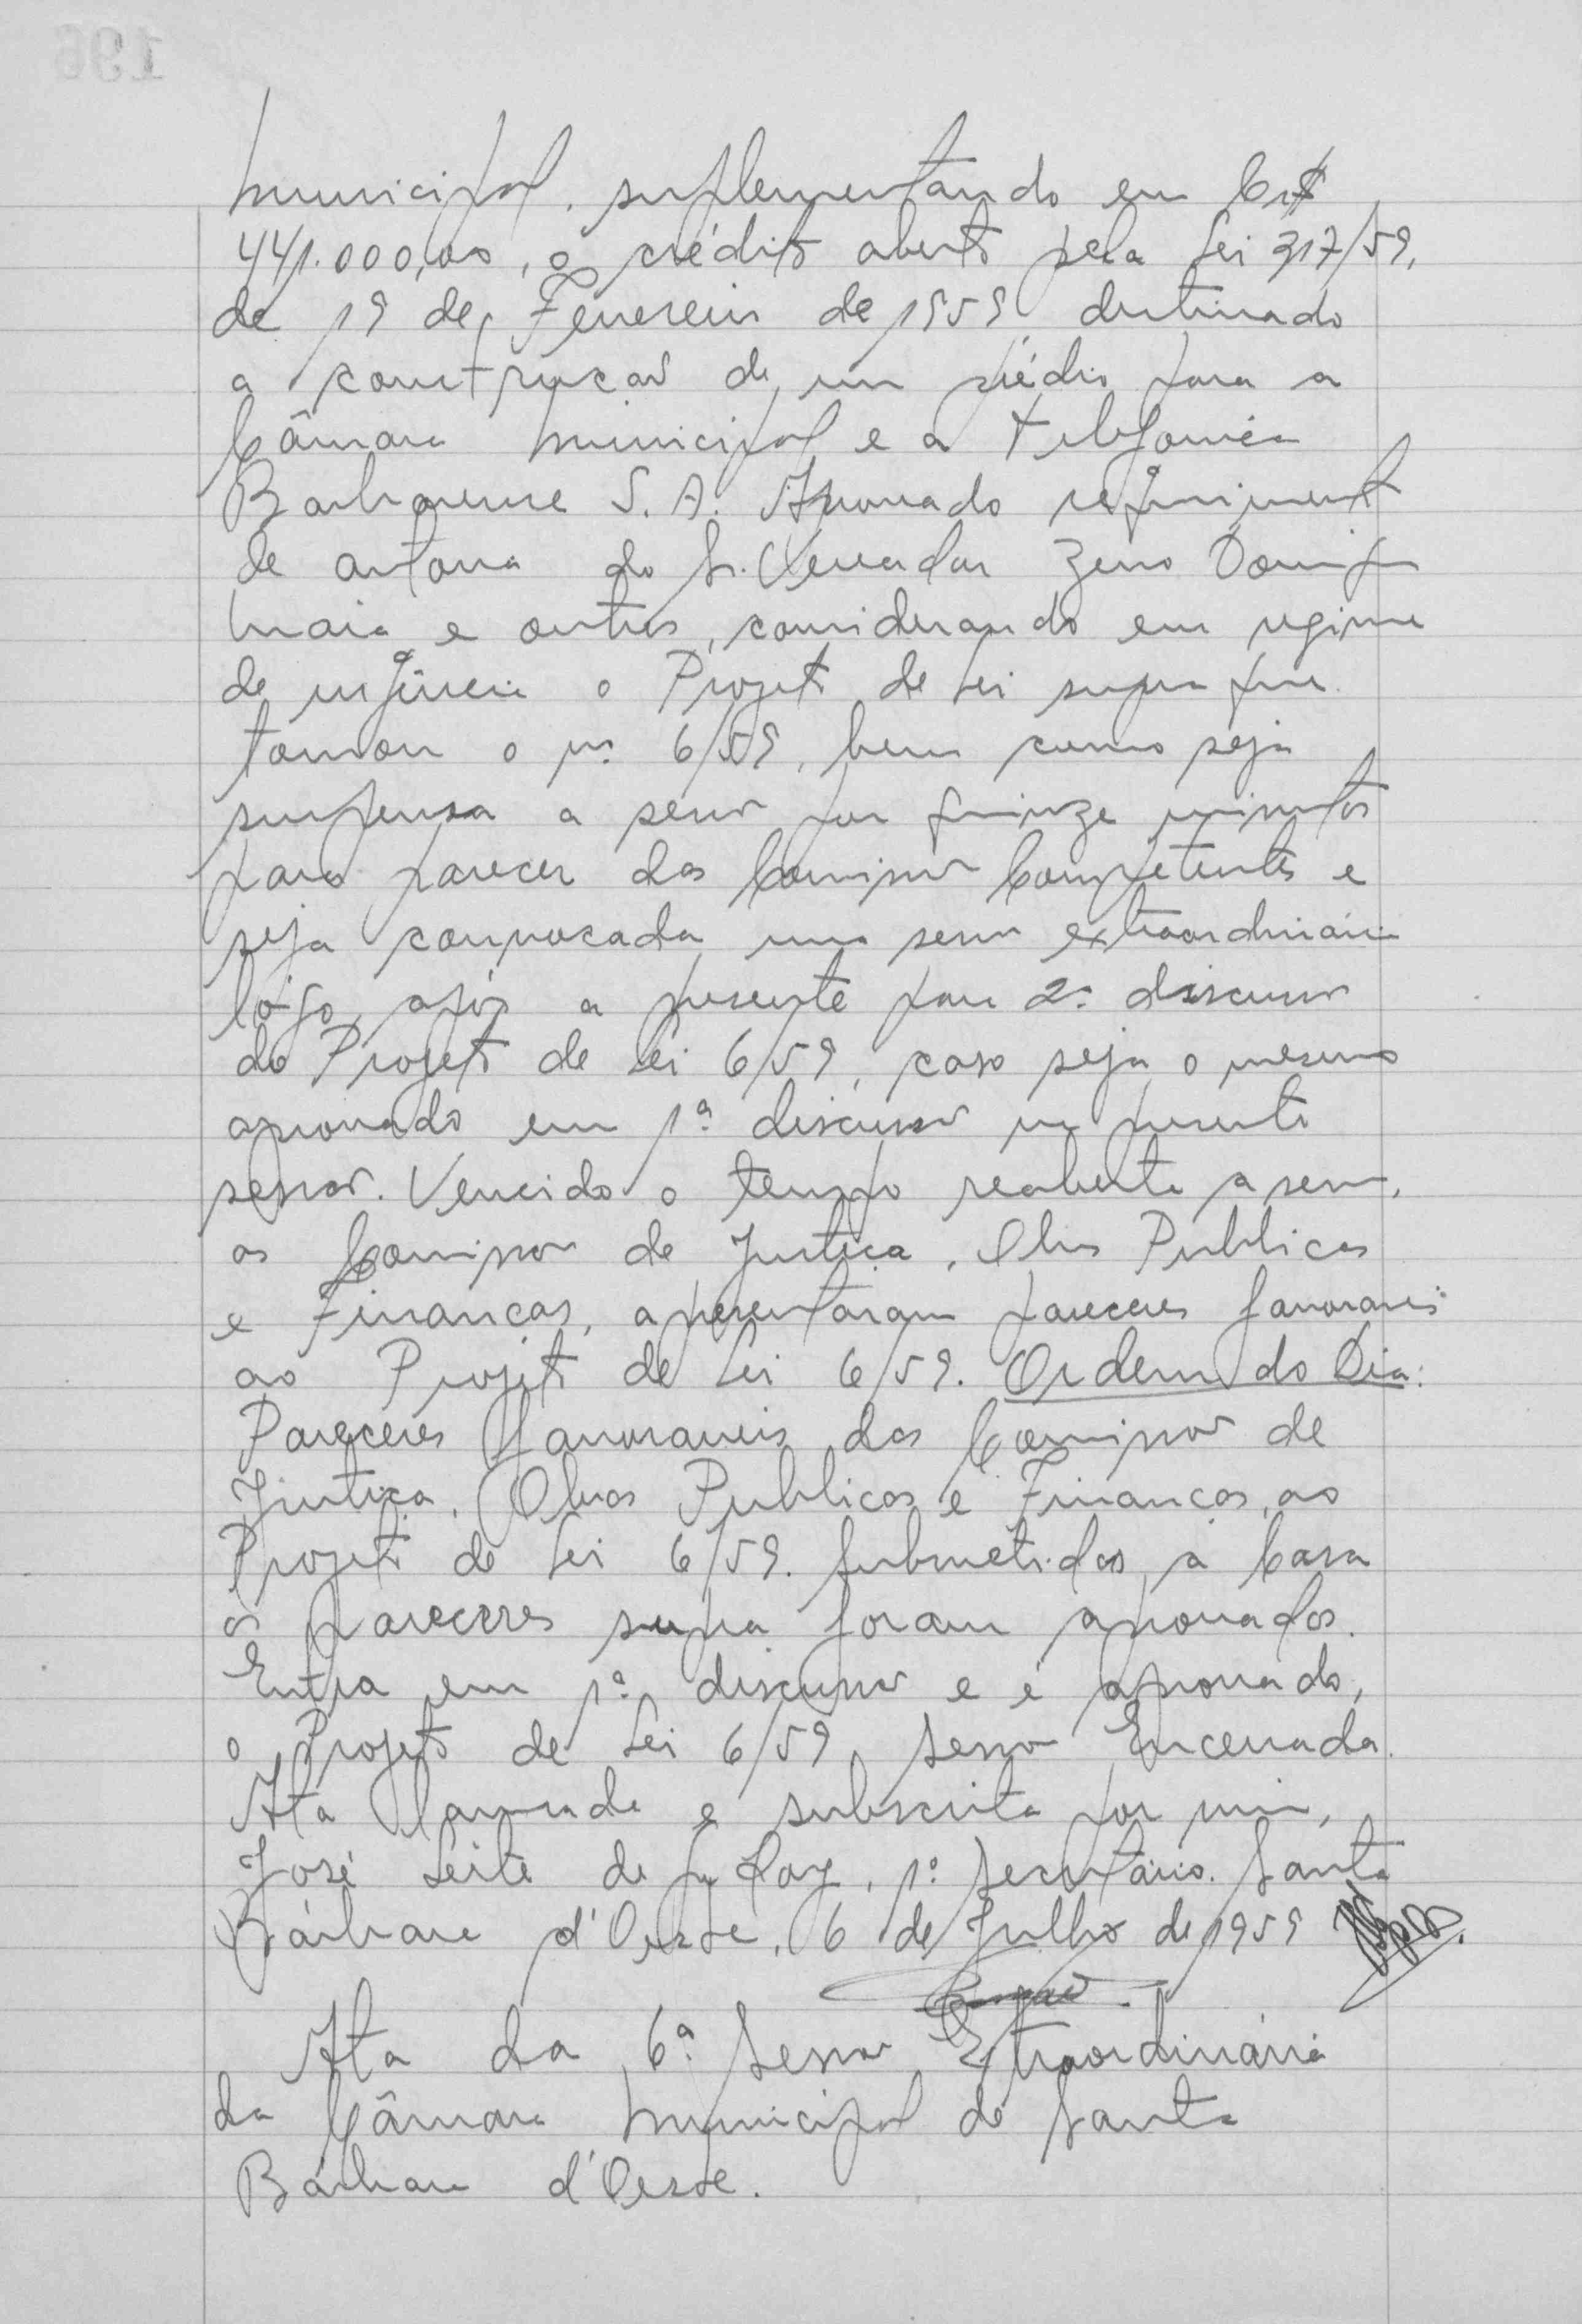 municipal, suplementando em Cr$
441.000,00, o crédito aberto pela Lei 317/59,
de 19 de Fevereiro de 1959 destinado
a construção de um prédio para a
Câmara Municipal e a Telefonica
Barbarense S. A. Aprovado requeriment
de autoria do Sr. Vereador Zeno
Maia e outros, considerando em regime
de urgência o Projeto de Lei supra que
tomou o nº 6/59, bem como seja
suspensa a sessão por quinze minutos
para parecer das Comissões Competentes e
seja convocada uma sessão extraordinária
lôgo após a presente para 2ª discussão
do Projeto de Lei 6/59, caso seja o mesmo
aprovado em 1ª discussão na presente
sessão. Vencido o tempo reaberta a sessão,
as Comissões de Justiça, Obras Publicas
e Finanças, apresentaram pareceres favoraveis
ao Projeto de Lei 6/59. Ordem do Dia:
Pareceres favoraveis das Comissões de
Justiça, Obras Publicas e Finanças, ao
Projeto de Lei 6/59. Submetidos à Casa
os pareceres supra foram aprovados.
Entra em 1ª discussão e é aprovado,
o Projeto de Lei 6/59. Sessão Encerrada.
Ata lavrada e subscrita por mim,
José Leite de 1º Secretário. Santa
Bárbara d'Oeste, 6 de Julho de 1959
Ata da 6ª Sessão Extraordinária
da Câmara Municipal de Santa
Bárbara d'Oeste.
196